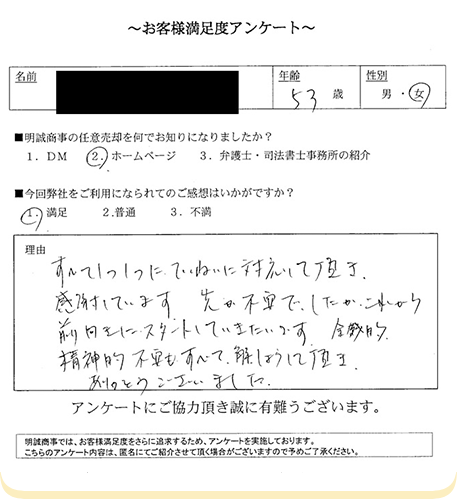 ～お客様満足度アンケート～
名前 年齢 性別
53 歳 男・女
■明誠商事の任意売却を何でお知りになりましたか？
1．DM 2．ホームページ 3．弁護士・司法書士事務所の紹介
■今回弊社をご利用になられてのご感想はいかがですか？
1．満足 2.普通 3．不満
理由
すべて1つ1つにていねいに対応して頂き、
感謝しています 先が不安でしたが、これから
前向きにスタートしていきたいです 金銭的
精神的不安もすべて解しょうして頂き
ありがとうございました。
アンケートにご協力頂き誠に有難うございます。
明誠商事では、お客様満足度をさらに追求するため、アンケートを実施しております。
こちらのアンケート内容は、匿名にてご紹介させて頂く場合がございますので予めご了承ください。